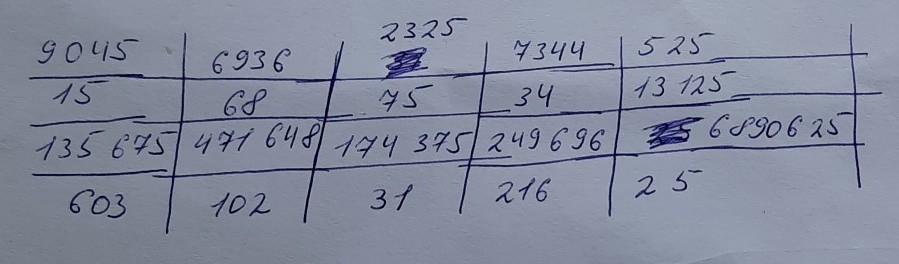 9045 6936 2325 7344 525
15 68 75 34 13 125
135 675 471 648 174 375 249 696 6890625
603 102 31 216 25